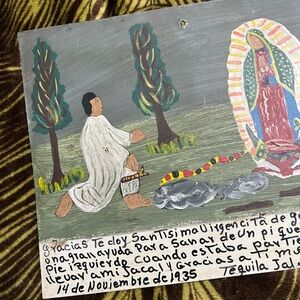 Gracias Te doy Santisimo Virgencita de g
na gran ayuda Para Sanar de Un pique
pie izquierdo cuando estaba par
llevar a mi Jacal y Gracias a ti m
14 de Noviembre de 1935 Tequila Jal